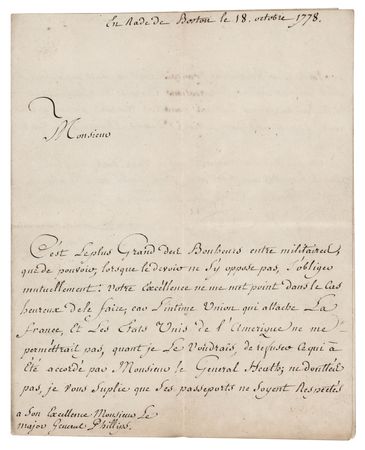 En Rade de Boston le 18. octobre 1778.
Monsieur
C'est le plus Grand des Bonheurs entre militaires,
que de pouvoir, lorsque le devoir ne s'y oppose pas, s'obliger
mutuellement: Votre Excellence ne me met point dans le Cas
heureux de le faire, car L'intime Union qui attache La
france, et Les Etats Unis de l'Amerique ne me
permettrait pas, quant je Le Voudrais, de refuser ce qui a
été accordé par Monsieur le General Heath; ne doutéz
pas, je vous Suplie que Ses passeports ne Soyent Respectés
a Son Excellence Monsieur Le
major General Phillips.